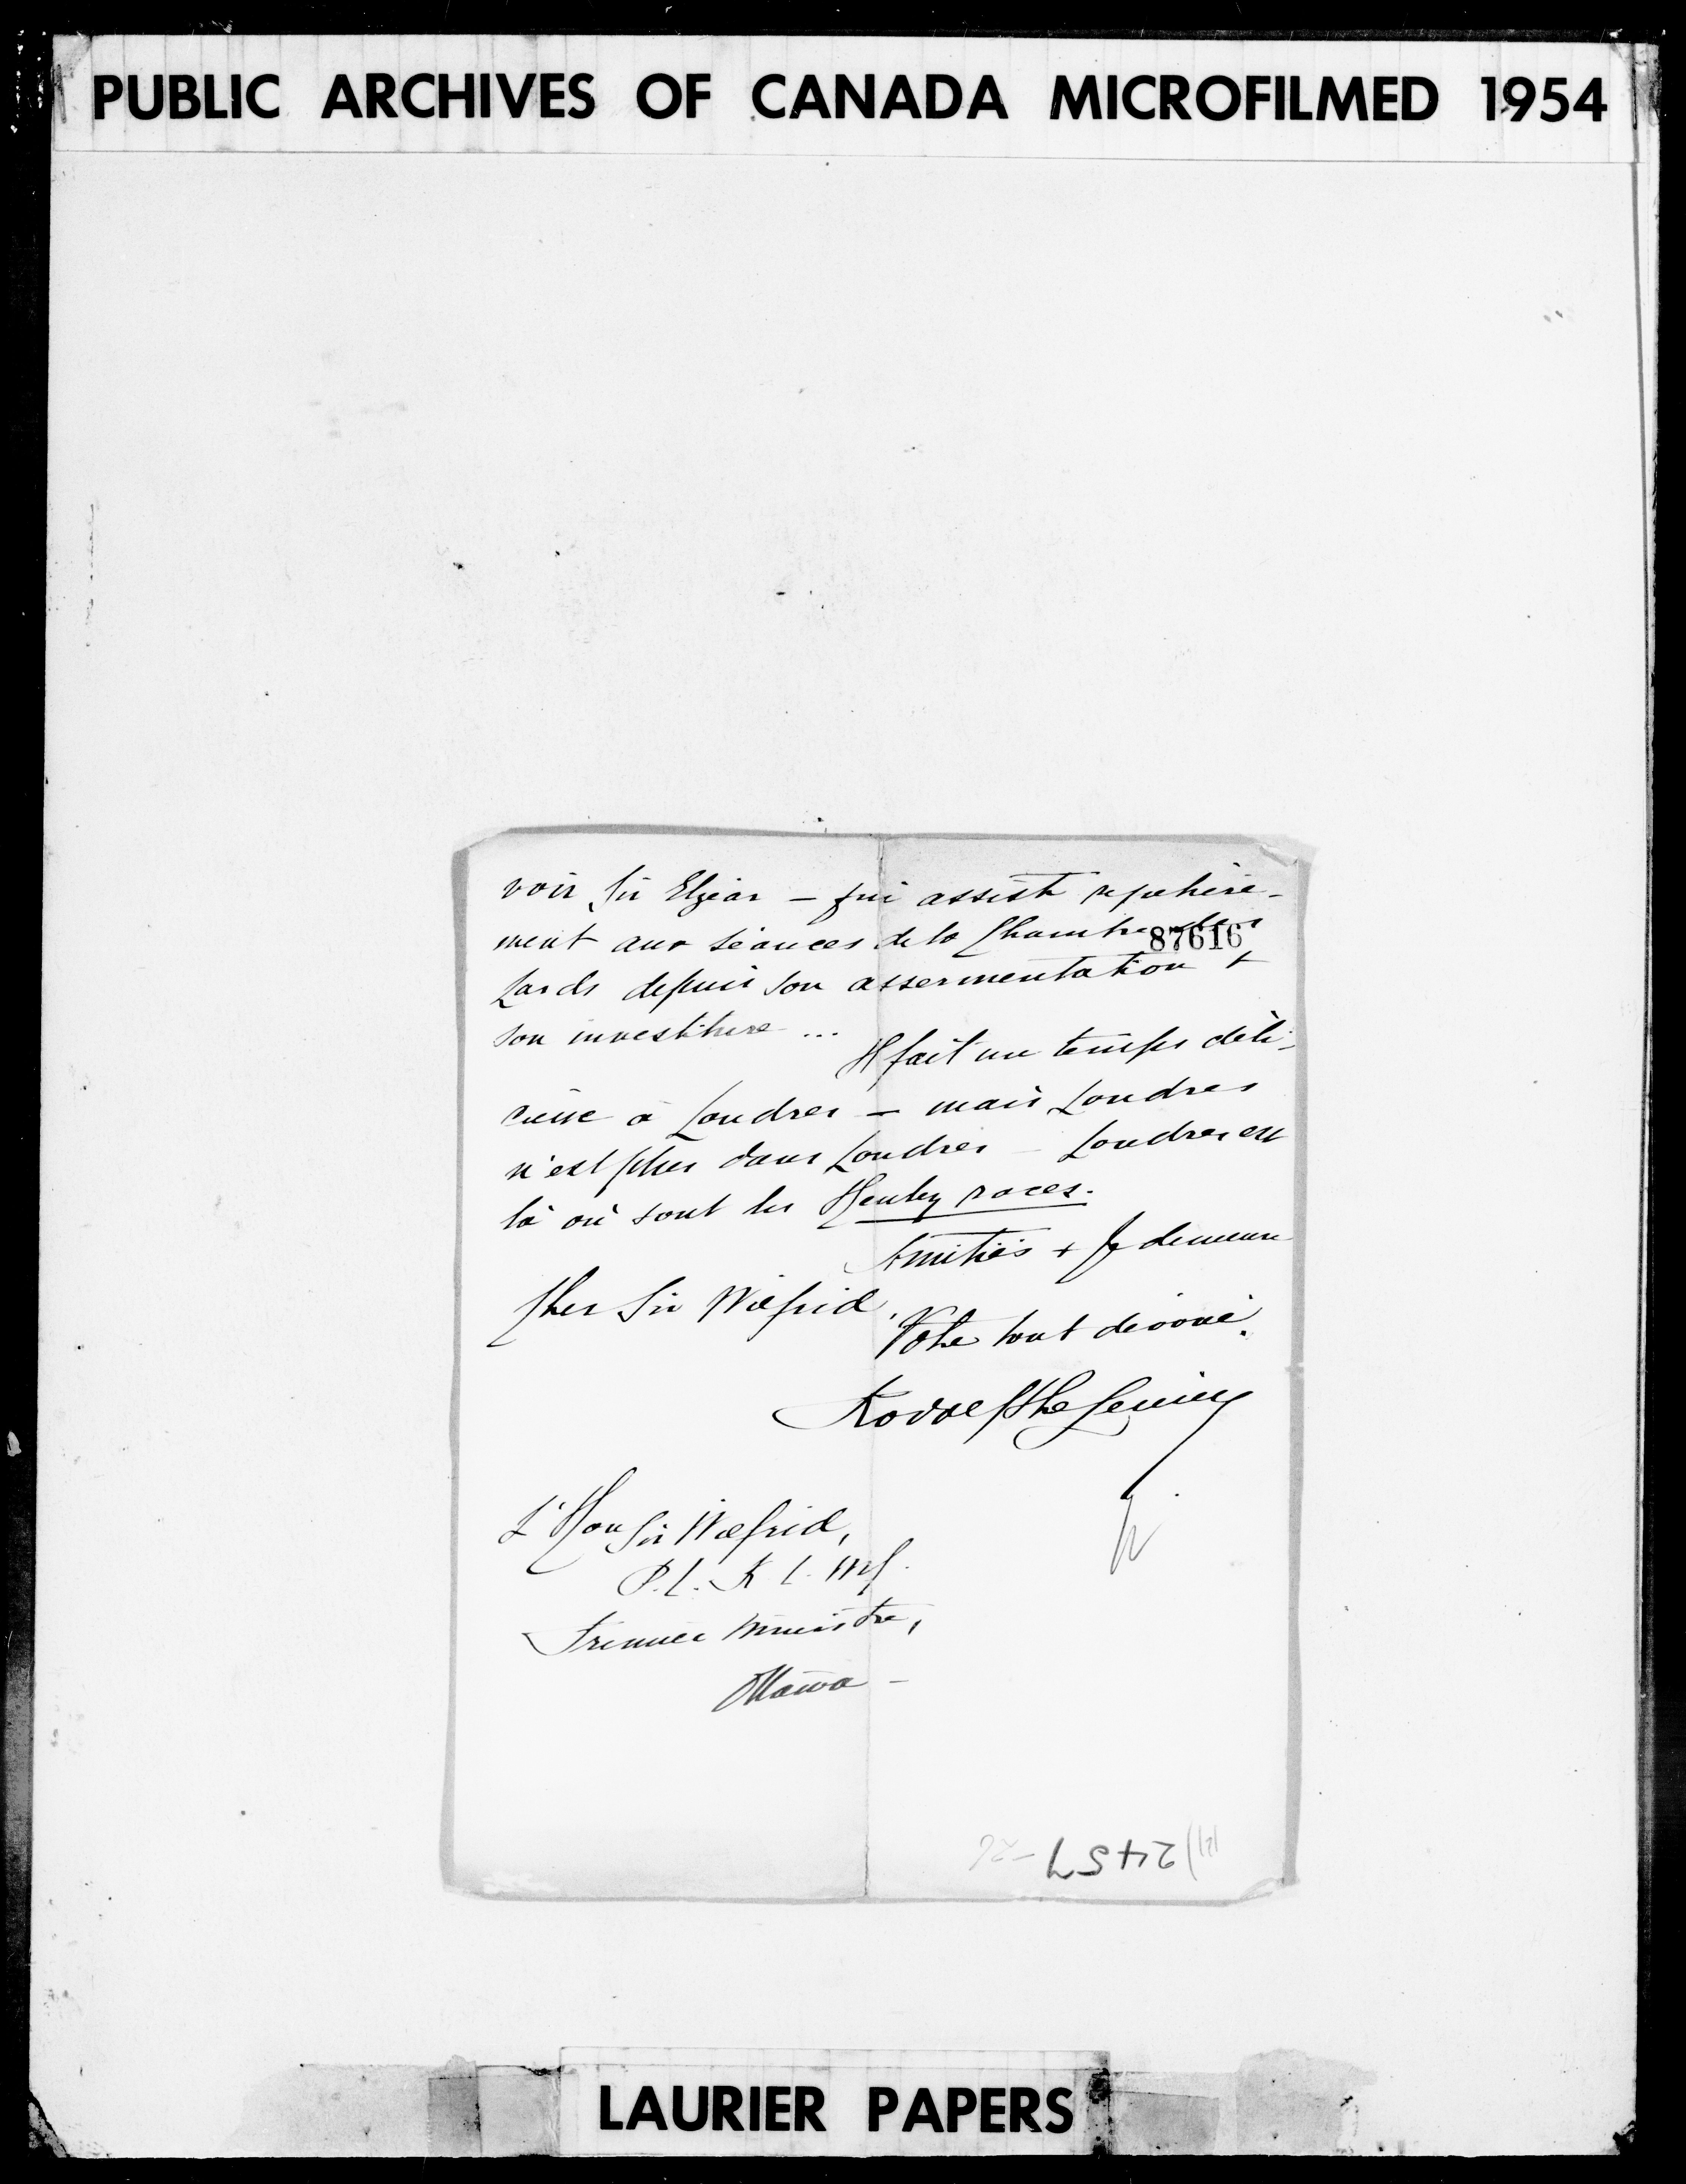 PUBLIC ARCHIVES OF CANADA MICROFILMED 1954
voir Sir Elzéar — qui assiste régulière-
ment aux séances de la Chambre des
87616
Lords depuis son assermentation &
son investiture ...
Il fait un temps déli-
cieux à Londres — mais Londres
n'est plus dans Londres — Londres est
là où sont les Henley races.
Amitiés & Je demeure
Cher Sir Wilfrid,
Votre tout dévoué.
Rodolphe Lemieux
L'Hon Sir Wilfrid,
P.C. K.C. M.P.
Premier Ministre,
Ottawa —
2457
LAURIER PAPERS